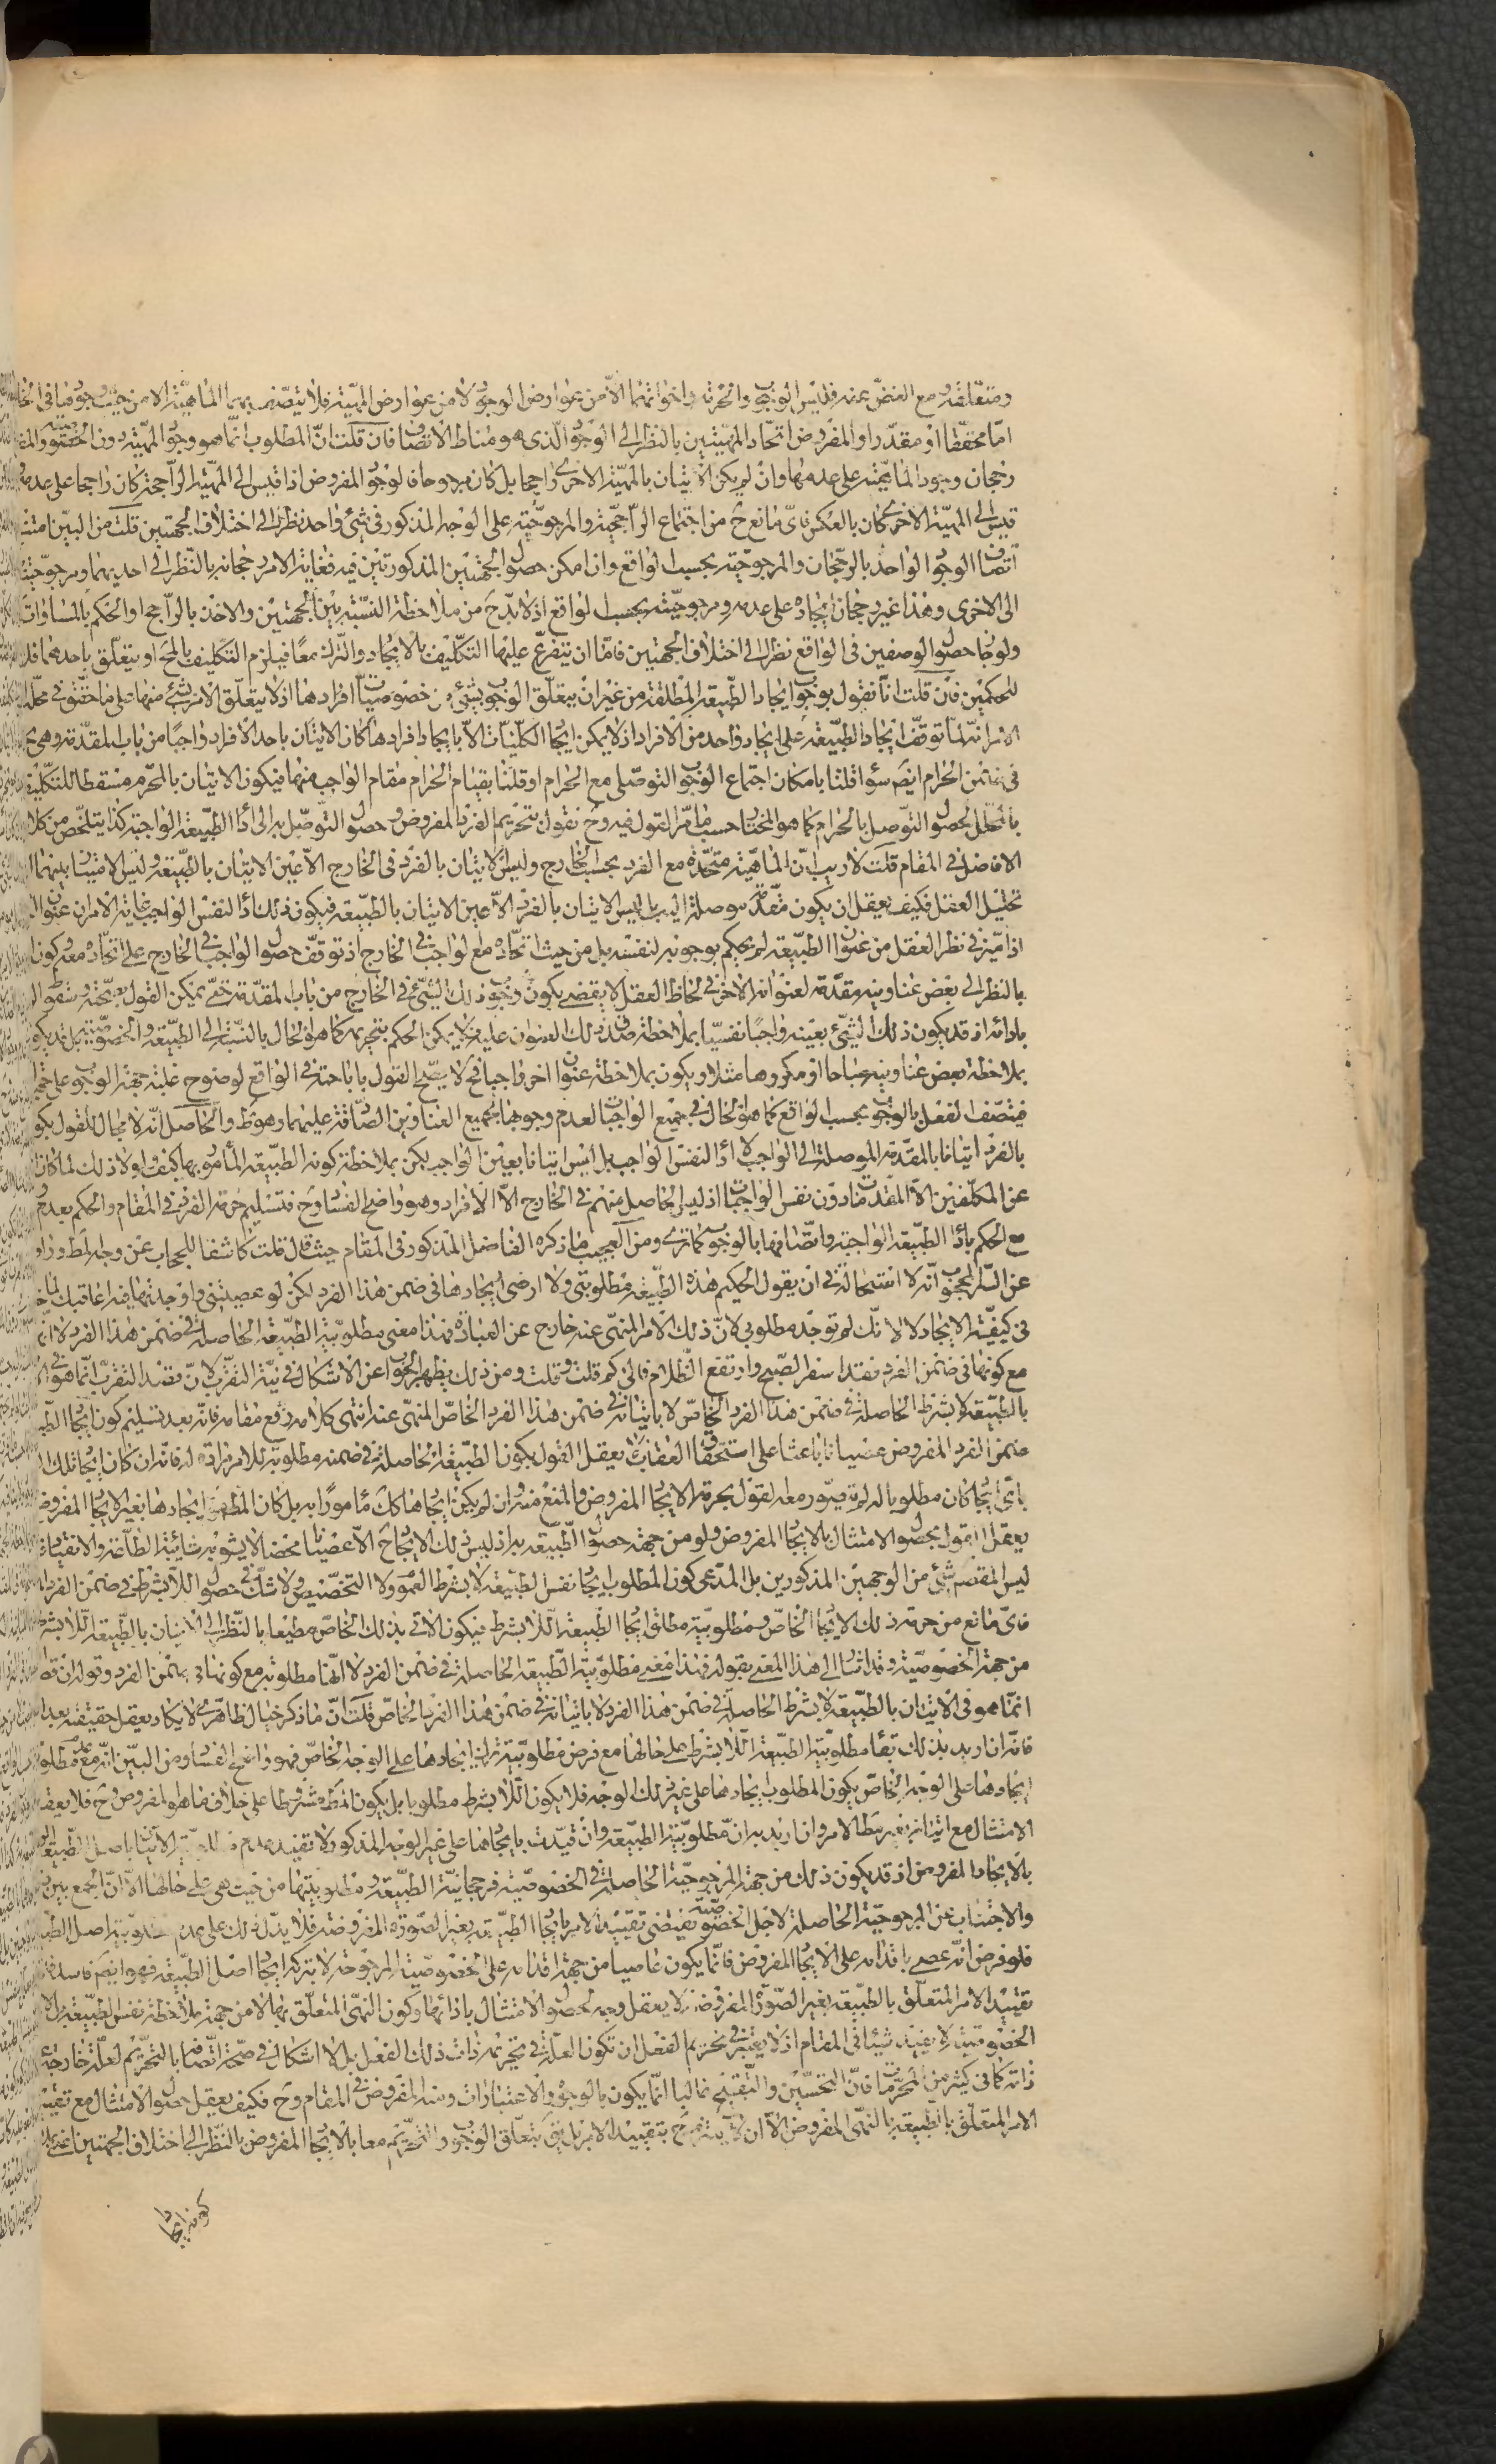 ومتعلقه مع الغض عنه فليس الوجوب والحرمة واخواتهما الا من عوارض الوجود لا من عوارض المهية فلا يتصف بهما الماهية الا من حيث وجودها في الخارج
اما محققا او مقدرا والمفروض اتحاد المهيتين بالنظر الى الوجود الذى هو مناط الاتصاف فان قلت ان المطلوب انما هو وجود المهية دون الخصوصية والمفروض
رجحان وجود الماهية على عدمها وان لم يكن الاتيان بالمهية الاخرى راجحا بل كان مرجوحا فالوجود المفروض اذا قيس الى المهية الراجحة كان راجحا على عدمه واذا
قيس الى المهية الاخرى كان بالعكس فاى مانع ح من اجتماع الراجحية والمرجوحية على الوجه المذكور في شئ واحد نظرا الى اختلاف الجهتين قلت من البين امتناع
اتصاف الوجود الواحد بالرجحان والمرجوحية بحسب الواقع وان امكن حصول الجهتين المذكورتين فيه فغاية الامر رجحانه بالنظر الى احديهما ومرجوحيته بالنظر
الى الاخرى وهذا غير رجحان ايجاده على عدمه ومرجوحيته بحسب الواقع اذ لا بد ح من ملاحظة النسبة بين الجهتين والاخذ بالراجح او الحكم بالمساوات
ولو جاز حصول الوصفين في الواقع نظرا الى اختلاف الجهتين فاما ان يتفرع عليها التكليف بالايجاد والترك معا فيلزم التكليف بالمحال او يتعلق باحدهما فلا
للحكمين فان قلت انا نقول بوجوب ايجاد الطبيعة المطلقة من غير ان يتعلق الوجوب بشئ من خصوصيات افرادها اذ لا يتعلق الامر بشئ منها على ما حققوه في محله غاية
الامر انه لما توقف ايجاد الطبيعة على ايجاد واحد من الافراد اذ لا يمكن ايجاد الكليات الا بايجاد افرادها كان الاتيان باحد الافراد واجبا من باب المقدمة وهى
في ضمن الحرام ايضا سواء قلنا بامكان اجتماع الوجوب التوصلى مع الحرام او قلنا بقيام الحرام مقام الواجب منهما فيكون الاتيان بالمحرم مسقطا للتكليف
لحصول التوصل بالحرام كما هو المختار حسب ما مر القول فيه وح نقول بتحريم الفرد المفروض وحصول التوصل به الى اداء الطبيعة الواجبة كذا يتلخص من كلام
الافاضل في المقام قلت لا ريب ان الماهية متحدة مع الفرد بحسب الخارج وليس الاتيان بالفرد في الخارج الا عين الاتيان بالطبيعة وليس الامتياز بينهما الا
تحليل العقل فكيف يعقل ان يكون مقدمة موصلة اليها بل ليس الاتيان بالفرد الا عين الاتيان بالطبيعة فيكون ذلك اداء لنفس الواجب غاية الامر ان عنوان
اذا ميز في نظر العقل من عنوان الطبيعة لم يحكم بوجوبه لنفسه بل من حيث اتحاده مع الواجب في الخارج اذ توقف حصول الواجب في الخارج على اتحاده معه وكون
بالنظر الى بعض عناوينه مقدمة لعنوانه الاخر في لحاظ العقل لا يقضى بكون وجوب ذلك الشئ في الخارج من باب المقدمة حتى يمكن القول بصحته وسقوط
بادائه اذ قد يكون ذلك الشئ بعينه واجبا نفسيا بملاحظة صدق ذلك العنوان عليه فلا يمكن الحكم بتحريمه كما هو الحال بالنسبة الى الطبيعة والخصوصية بل قد يكون
بملاحظة بعض عناوينه مباحا او مكروها مثلا ويكون بملاحظة عنوان اخر واجبا فح لا يصح القول باباحته في الواقع لوضوح غلبة جهة الوجوب على
فيتصف الفعل بالوجوب بحسب الواقع كما هو الحال في جميع الواجبات لعدم وجوبها بجميع العناوين الصادقة عليها وهو ظ والحاصل انه لا مجال للقول بكون
بالفرد اتيانا بالمقدمة الموصلة الى الواجب لا اداء لنفس الواجب بل ليس اتيانا بعين الواجب لكن بملاحظة كونه الطبيعة المأمور بها كيف ولولا ذلك لما كان
عن المكلفين الا المقدمات دون نفس الواجبات اذ ليس الحاصل منهم في الخارج الا الافراد وهو واضح الفساد وح فتسليم حرمة الفرد في المقام والحكم بعدم
مع الحكم باداء الطبيعة الواجبة واتصافها بالوجوب كما ترى ومن العجيب ما ذكره الفاضل المذكور في المقام حيث قال قلت كاشفا للحجاب عن وجه المط ورافعا
عن السر المحجوب انه لا استحالة في ان يقول الحكيم هذه الطبيعة مطلوبتى ولا ارضى ايجادها في ضمن هذا الفرد لكن لو عصيتنى واوجدتها فيه اعاقبك لما
في كيفية الايجاد لا لانك لم توجد مطلوبى لان ذلك الامر المنهى عنه خارج عن العبادة فهذا معنى مطلوبية الطبيعة الحاصلة في ضمن هذا الفرد لا انها
مع كونها في ضمن الفرد فقد اسفر الصبح وارتفع الظلام فالى كم قلت وقلت ومن ذلك يظهر الجواب عن الاشكال في نية التقرب لان قصد التقرب انما هو في
بالطبيعة لا بشرط الحاصلة في ضمن هذا الفرد الخاص لا باتيانه في ضمن هذا الفرد الخاص المنهى عنه انتهى كلامه رفع مقامه فانه بعد تسليم كون ايجاد
ضمن الفرد المفروض عصيانا باعثا على استحقاق العقاب كيف يعقل القول بكون الطبيعة الحاصلة في ضمنه مطلوبة للامر مرادة له فانه ان كان ايجاد تلك
باى ايجاد كان مطلوبا له لم يتصور معه القول بحرمة الايجاد المفروض والمنع منه وان لم يكن ايجادها كك مامورا به بل كان المط ايجادها بغير الايجاد المفروض
يعقل القول بحصول الامتثال بالايجاد المفروض ولو من جهة حصول الطبيعة به اذ ليس ذلك الايجاد ح الا عصيانا محضا لا يشوبه شائبة الطاعة والانقياد
ليس المقصود شئ من الوجهين المذكورين بل المدعى كون المطلوب ايجاد نفس الطبيعة لا بشرط العموم ولا التخصيص ولا شك في حصول اللا بشرط في ضمن الفرد
فاى مانع من حرمة ذلك الايجاد الخاص ومطلوبية مطلق ايجاد الطبيعة اللا بشرط فيكون الاتى بذلك الخاص مطيعا بالنظر الى الاتيان بالطبيعة اللا بشرط
من جهة الخصوصية وقد اشار الى هذا المعنى بقوله فهذا معنى مطلوبية الطبيعة الحاصلة في ضمن الفرد لا انها مطلوبة مع كونها في ضمن الفرد وقوله ان
انما هو في الاتيان بالطبيعة لا بشرط الحاصلة في ضمن هذا الفرد لا باتيانه في ضمن هذا الفرد الخاص قلت ان ما ذكر خيال ظاهرى لا يكاد يعقل حقيقته بعد
فانه ان اريد بذلك بقاء مطلوبية الطبيعة اللا بشرط على حالها مع فرض مطلوبية ترك ايجادها على الوجه الخاص فهو واضح الفساد ومن البين انه مع عدم مطلوبية
ايجادها على الوجه الخاص يكون المطلوب ايجادها على غير ذلك الوجه فلا يكون اللا بشرط مطلوبا بل يكون المط مشروطا على خلاف ما هو المفروض وح فلا يعقل
الامتثال مع اتيانه بغير متعلق الامر وان اريد به ان مطلوبية الطبيعة وان قيدت بايجادها على غير الوجه المذكور لا تفيد عدم الاتيان باصل الطبيعة
بالايجاد المفروض اذ قد يكون ذلك من جهة المرجوحية الحاصلة في الخصوصية فرجحانية الطبيعة ومطلوبيتها من حيث هى على حالها الا ان الجمع بين
والاجتناب عن المرجوحية الحاصلة لاجل الخصوصية يقتضى تقييد الامر بايجاد الطبيعة بغير الصورة المفروضة فلا يدل ذلك على عدم مطلوبية اصل الطبيعة
فلو فرض انه عصى باقدامه على الايجاد المفروض فانما يكون عاصيا من جهة اقدامه على الخصوصية المرجوحة لا بتركه ايجاد اصل الطبيعة فهو ايضا فاسد
تقييد الامر المتعلق بالطبيعة بغير الصورة المفروضة لا يعقل وجه لحصول الامتثال بادائها وكون النهى المتعلق بها لا من جهة ملاحظة نفس الطبيعة بل
الخصوصية لا يفيد شيئا في المقام اذ لا يعتبر في تحريم الفعل ان تكون العلة في تحريمه ذات ذلك الفعل بل لا اشكال في صحة اتصافها بالتحريم لعلة خارجة عن
ذاته كما في كثير من المحرمات فان التحسين والتقبيح غالبا انما يكون بالوجوه والاعتبارات ومنه المفروض في المقام وح فكيف يعقل حصول الامتثال مع تقييد
الامر المتعلق بالطبيعة بالنهى المفروض الا ان لا يلتزم ح بتقييد الامر بل يقى بتعلق الوجوب والتحريم معا بالايجاد المفروض بالنظر الى اختلاف الجهتين
كونه ايجادا